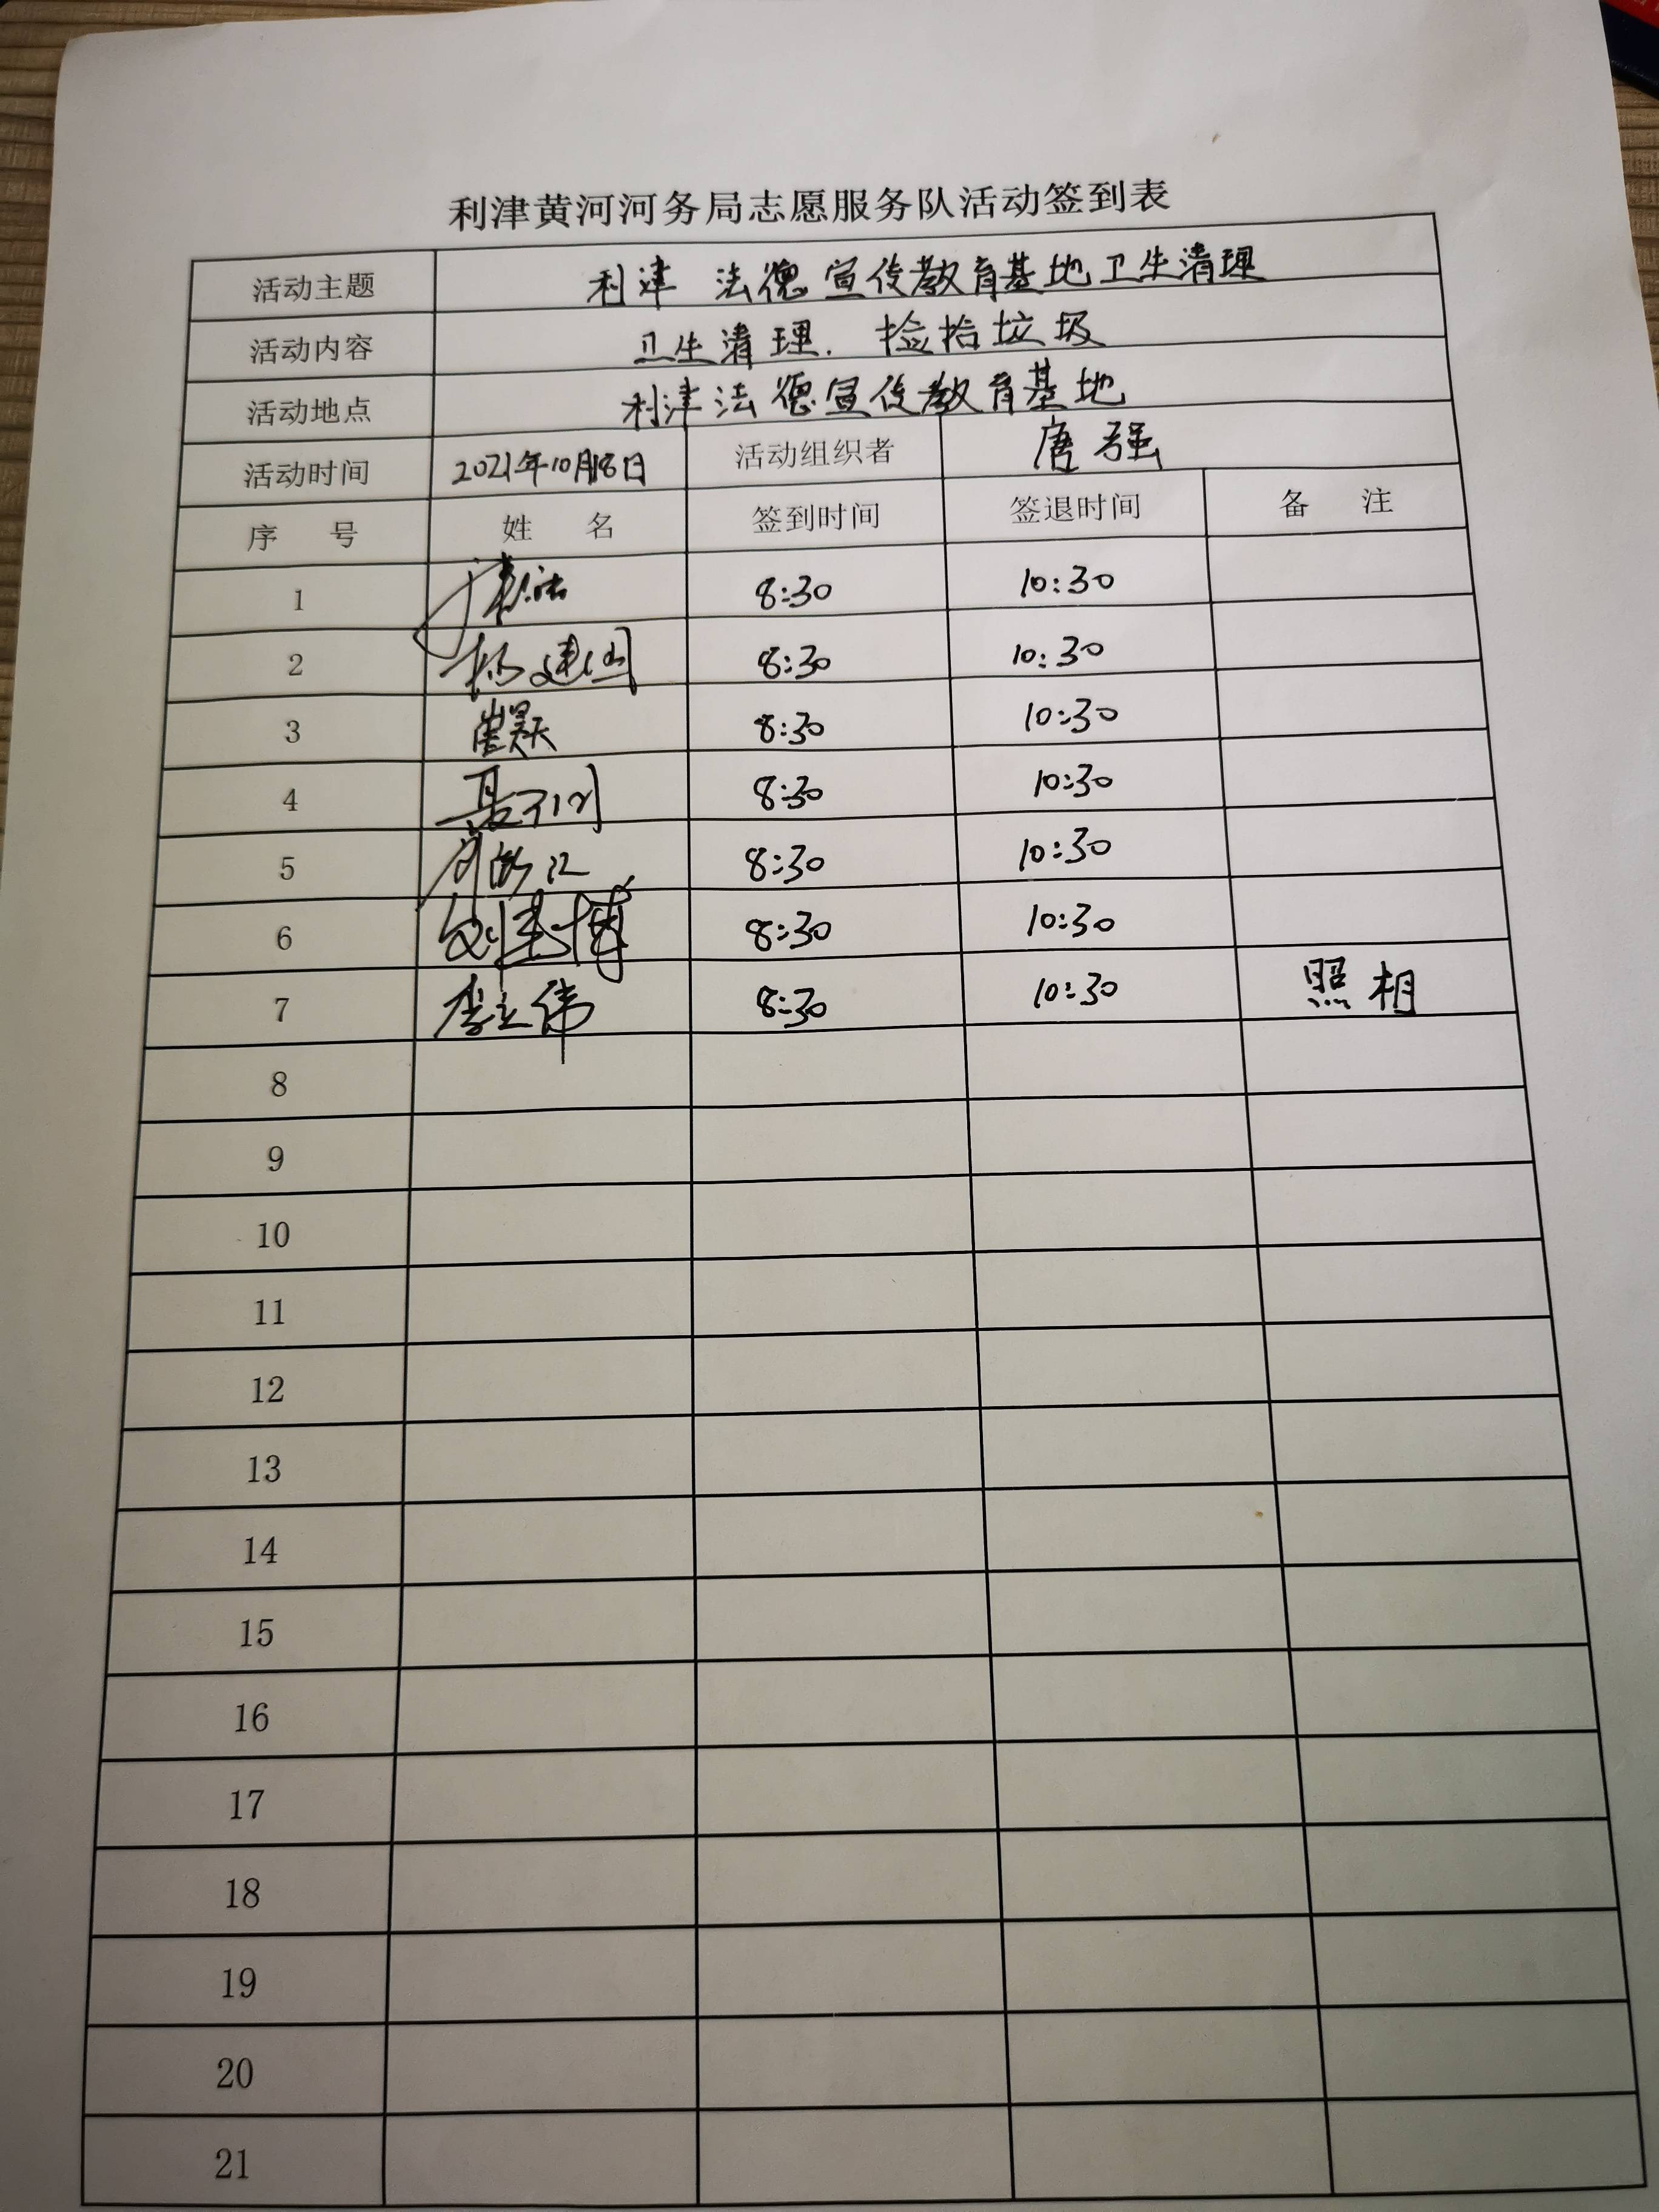 利津黄河河务局志愿服务队活动签到表
活动主题 利津 法德宣传教育基地卫生清理
活动内容 卫生清理. 捡拾垃圾
活动地点 利津法德宣传教育基地
活动时间 2021年10月18日 活动组织者 唐强
序 号 姓 名 签到时间 签退时间 备 注
1 8:30 10:30
2 8:30 10:30
3 崔昊天 8:30 10:30
4 8:30 10:30
5 8:30 10:30
6 刘建博 8:30 10:30
7 李立伟 8:30 10:30 照相
8
9
10
11
12
13
14
15
16
17
18
19
20
21